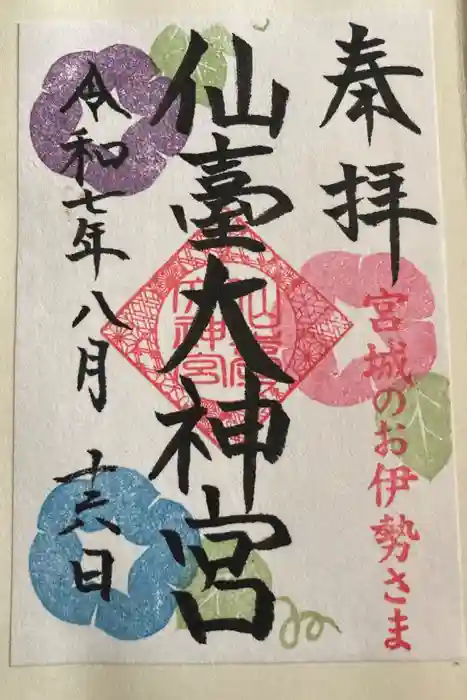 奉拝
宮城のお伊勢さま
仙臺大神宮
仙臺大神宮
令和七年八月十六日